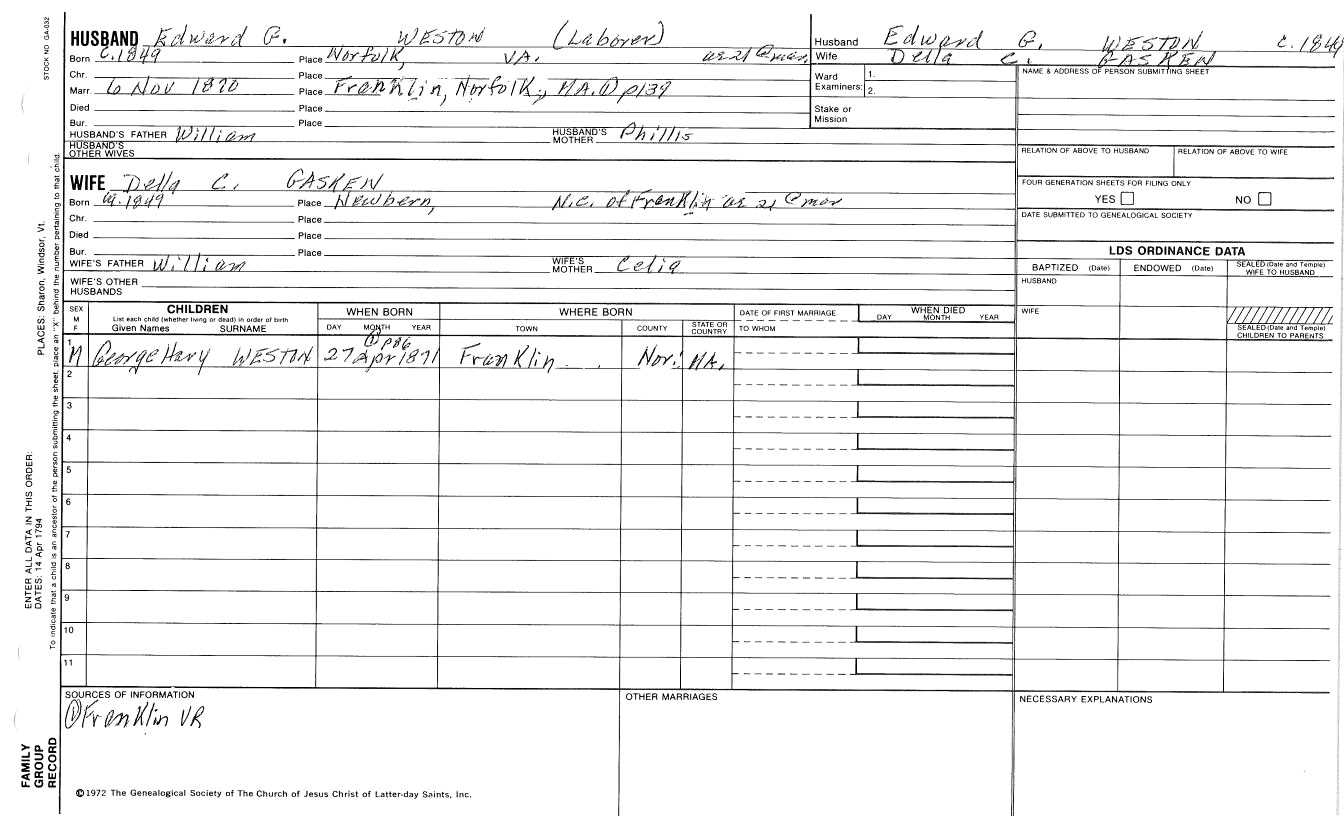 STOCK NO GA-032
HUSBAND Edward G. WESTON (Laborer)
Born C.1849 Place Norfolk, VA. ae 21 @ mar.
Chr. Place
Marr. 6 Nov 1870 Place Franklin, Norfolk, MA. ① p139
Died Place
Bur. Place
HUSBAND'S FATHER William HUSBAND'S MOTHER Phillis
HUSBAND'S OTHER WIVES
WIFE Della C. GASKEN
Born ca. 1849 Place Newbern, N.C. of Franklin ae 21 @ mar
Chr. Place
Died Place
Bur. Place
WIFE'S FATHER William WIFE'S MOTHER Celia
WIFE'S OTHER HUSBANDS
Husband Edward G. WESTON C.1849
Wife Della C. GASKEN
Ward Examiners: 1. 2.
Stake or Mission
NAME & ADDRESS OF PERSON SUBMITTING SHEET
RELATION OF ABOVE TO HUSBAND RELATION OF ABOVE TO WIFE
FOUR GENERATION SHEETS FOR FILING ONLY
YES NO
DATE SUBMITTED TO GENEALOGICAL SOCIETY
LDS ORDINANCE DATA
BAPTIZED (Date) ENDOWED (Date) SEALED (Date and Temple) WIFE TO HUSBAND
HUSBAND
WIFE
SEALED (Date and Temple) CHILDREN TO PARENTS
SEX M F
CHILDREN
List each child (whether living or dead) in order of birth
Given Names SURNAME
WHEN BORN
DAY MONTH YEAR
WHERE BORN
TOWN COUNTY STATE OR COUNTRY
DATE OF FIRST MARRIAGE
TO WHOM
WHEN DIED
DAY MONTH YEAR
① p86
1 M George Hary WESTON 27 Apr 1871 Franklin Nor. MA.
2
3
4
5
6
7
8
9
10
11
SOURCES OF INFORMATION
① Franklin VR
OTHER MARRIAGES
NECESSARY EXPLANATIONS
©1972 The Genealogical Society of The Church of Jesus Christ of Latter-day Saints, Inc.
FAMILY GROUP RECORD
ENTER ALL DATA IN THIS ORDER:
DATES: 14 Apr 1794 PLACES: Sharon, Windsor, Vt.
To indicate that a child is an ancestor of the person submitting the sheet, place an "X" behind the number pertaining to that child.